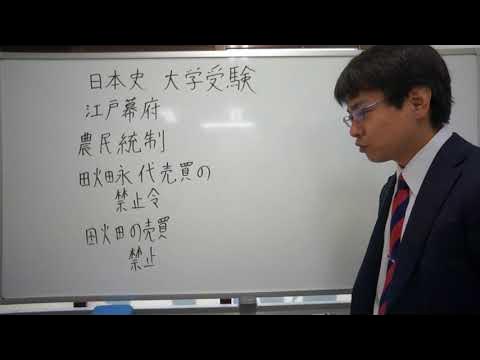 日本史 大学受験
江戸幕府
農民統制
田畑永代売買の
禁止令
田畑の売買
禁止